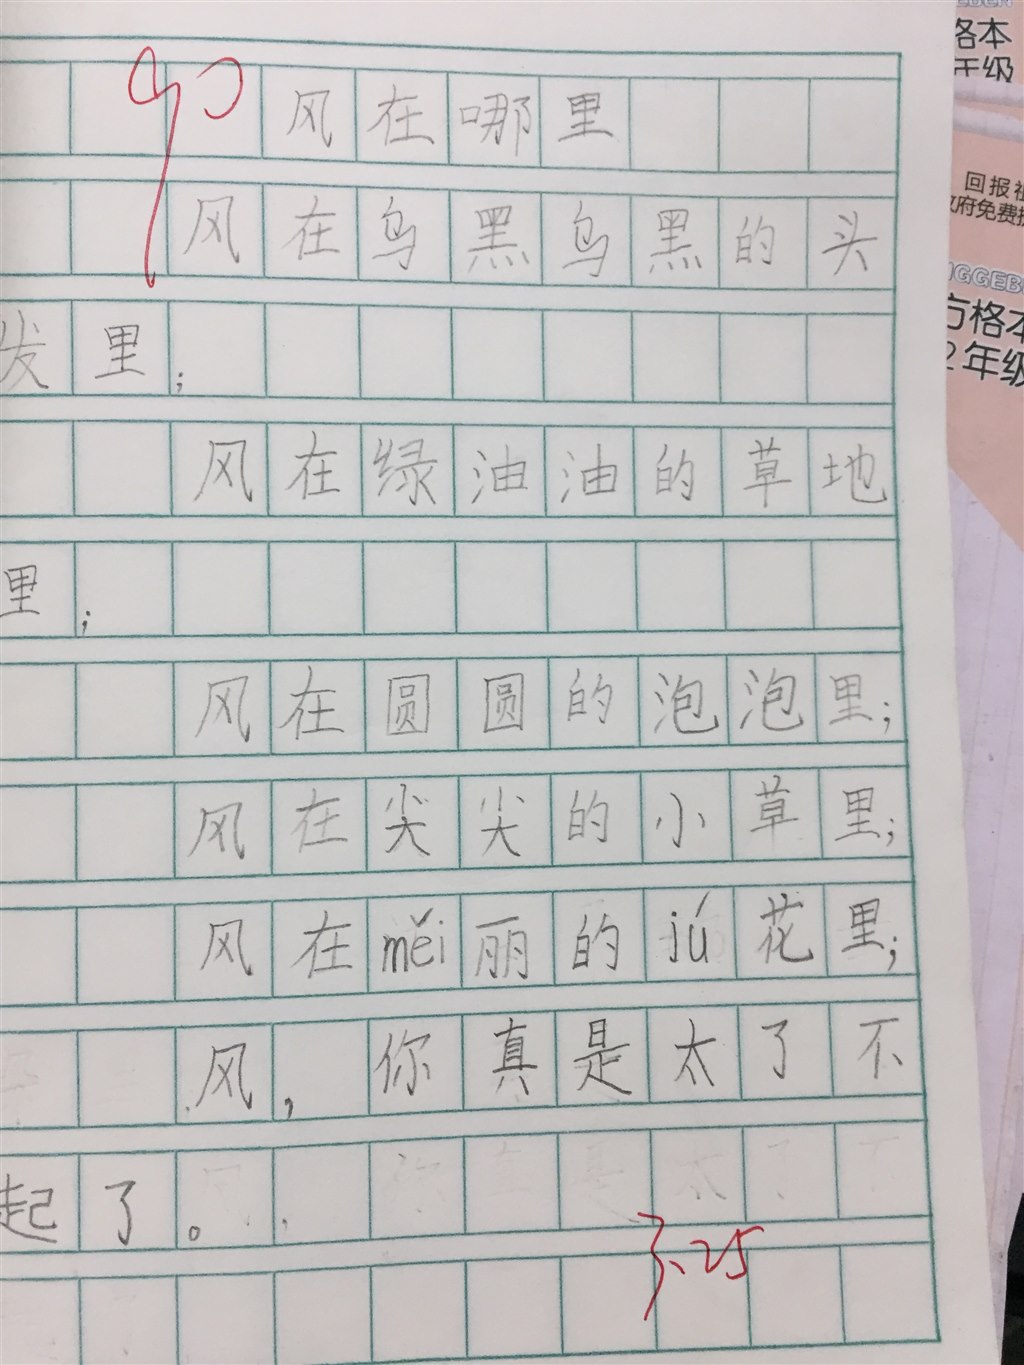 90
风在哪里
风在乌黑乌黑的头
发里;
风在绿油油的草地
里;
风在圆圆的泡泡里;
风在尖尖的小草里;
风在měi丽的jú花里;
风,你真是太了不
起了。
3.25
格本
年级
回报祖
政府免费提
方格本
2年级